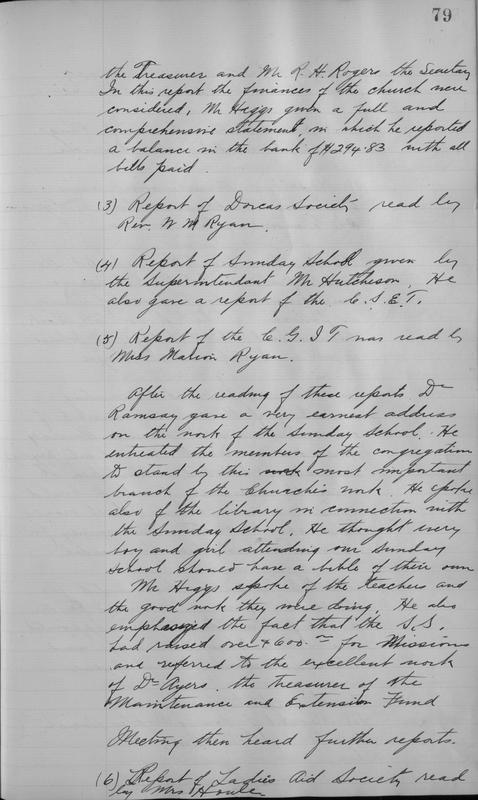 79
the Treasurer and Mr R. H. Rogers the Secretary
In this report the finances of the church were
considered, Mr Higgs given a full and
comprehensive statement, in which he reported
a balance in the bank of $1294.83 with all
bills paid.
(3) Report of Dorcas Society read by
Rev. W M Ryan.
(4) Report of Sunday School given by
the Superintendant Mr Hutcheson. He
also gave a report of the C.S.E.T.
(5) Report of the C.G.I T was read by
Miss Marion Ryan.
After the reading of these reports Dr
Ramsay gave a very earnest address
on the work of the Sunday School. He
entreated the members of the congregation
to stand by this work most important
branch of the Church's work. He spoke
also of the library in connection with
the Sunday School. He thought every
boy and girl attending our Sunday
School should have a bible of their own
Mr Higgs spoke of the teachers and
the good work they were doing. He also
emphasized the fact that the S.S.
had raised over $600.00 for Missions
and referred to the excellent work
of Dr Ayers the treasurer of the
Maintenance and Extension Fund
Meeting then heard further reports.
(6) Report of Ladies Aid Society read
by Mrs